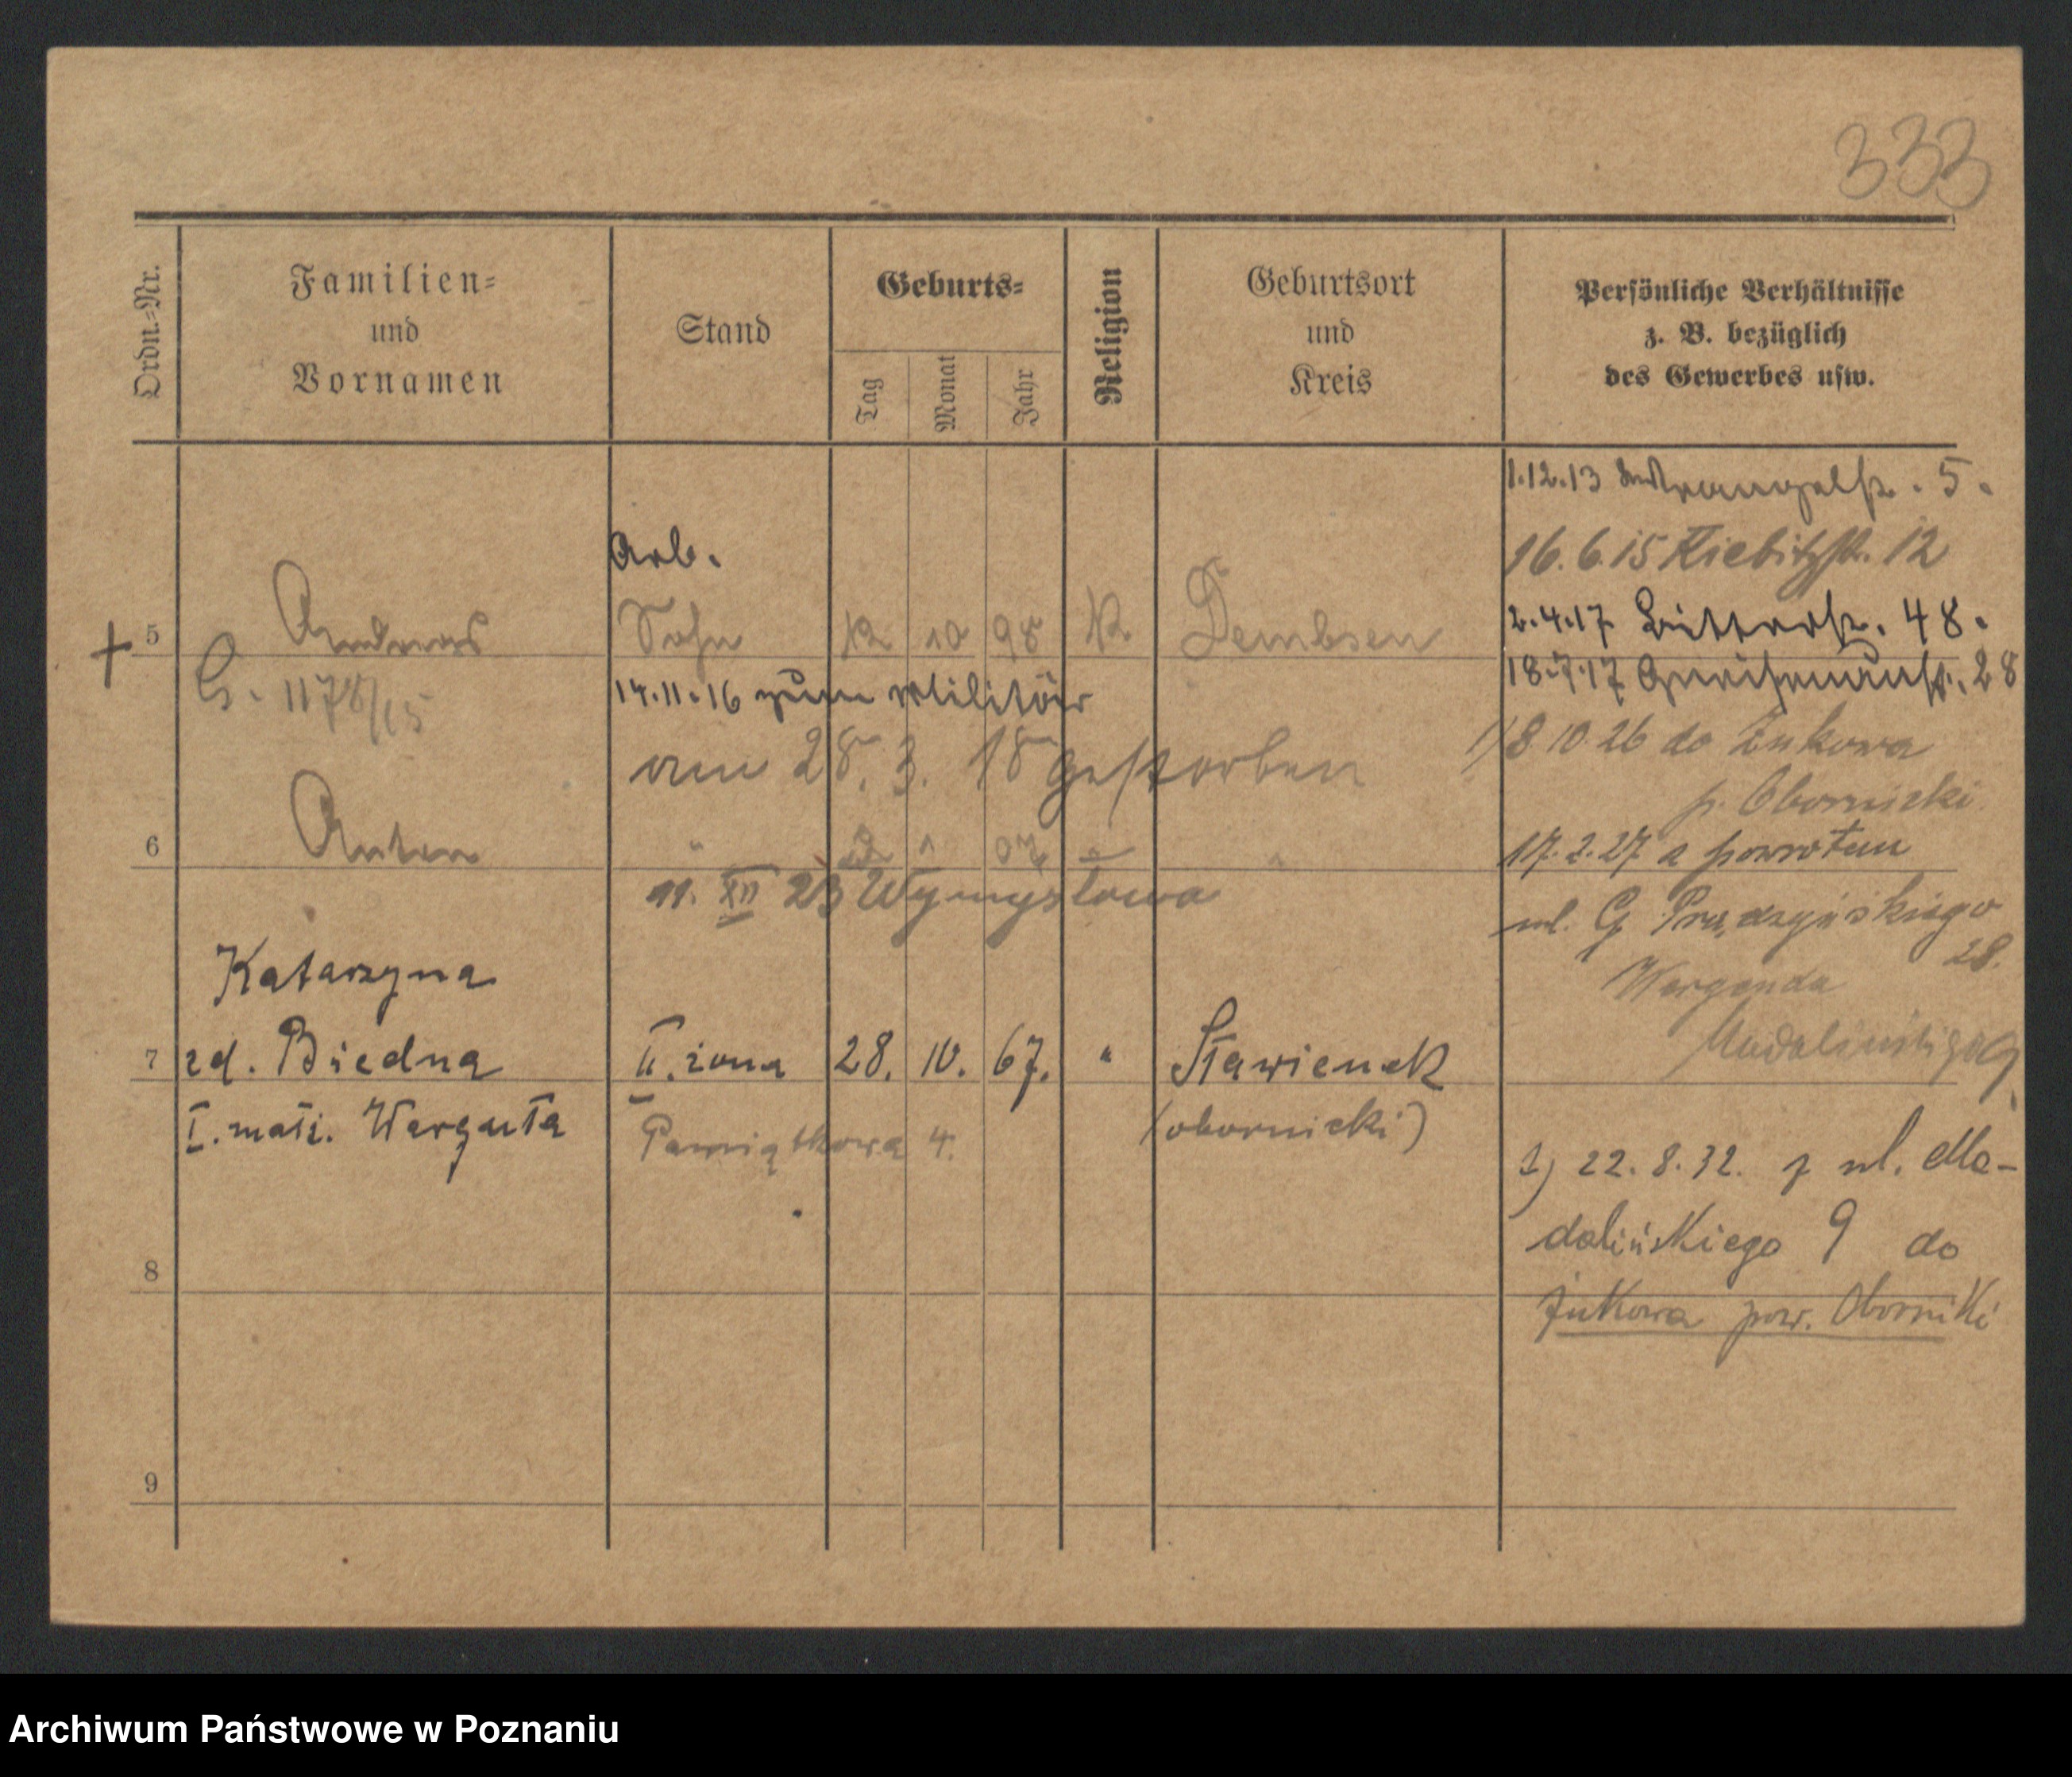 333
Ordn.-Nr.
Familien-
und
Vornamen
Stand
Geburts-
Tag
Monat
Jahr
Religion
Geburtsort
und
Kreis
Persönliche Verhältnisse
z. B. bezüglich
des Gewerbes usw.
1.12.13 Wrangelstr. 5.
16.6.15 Kiebitzstr. 12
2.4.17 Ritterstr. 48.
18.7.17 Gneisenaustr. 28
1) 8 10. 26 do Żukowa
p. Obornicki
17. 2. 27 a powrotem
ul. G. Prądzyńskiego
28.
Warganda
Madalińskiego 9
2) 22. 8. 32. z ul. Ma-
dalińskiego 9 do
Żukowa pow. Oborniki
Arb.
5 Andreas Sohn 12 10 98 K Dembsen
G. 1178/15 14.11.16 zum Militär
am 28. 3. 18 gestorben
6 Anton " 07
11. XII 23 Wymysłowa
Katarzyna
7 zd. Biedna II. żona 28. 10. 67. " Sławienek
I. małż. Warguła Pamiątkowa 4. (obornicki)
8
9
Archiwum Państwowe w Poznaniu